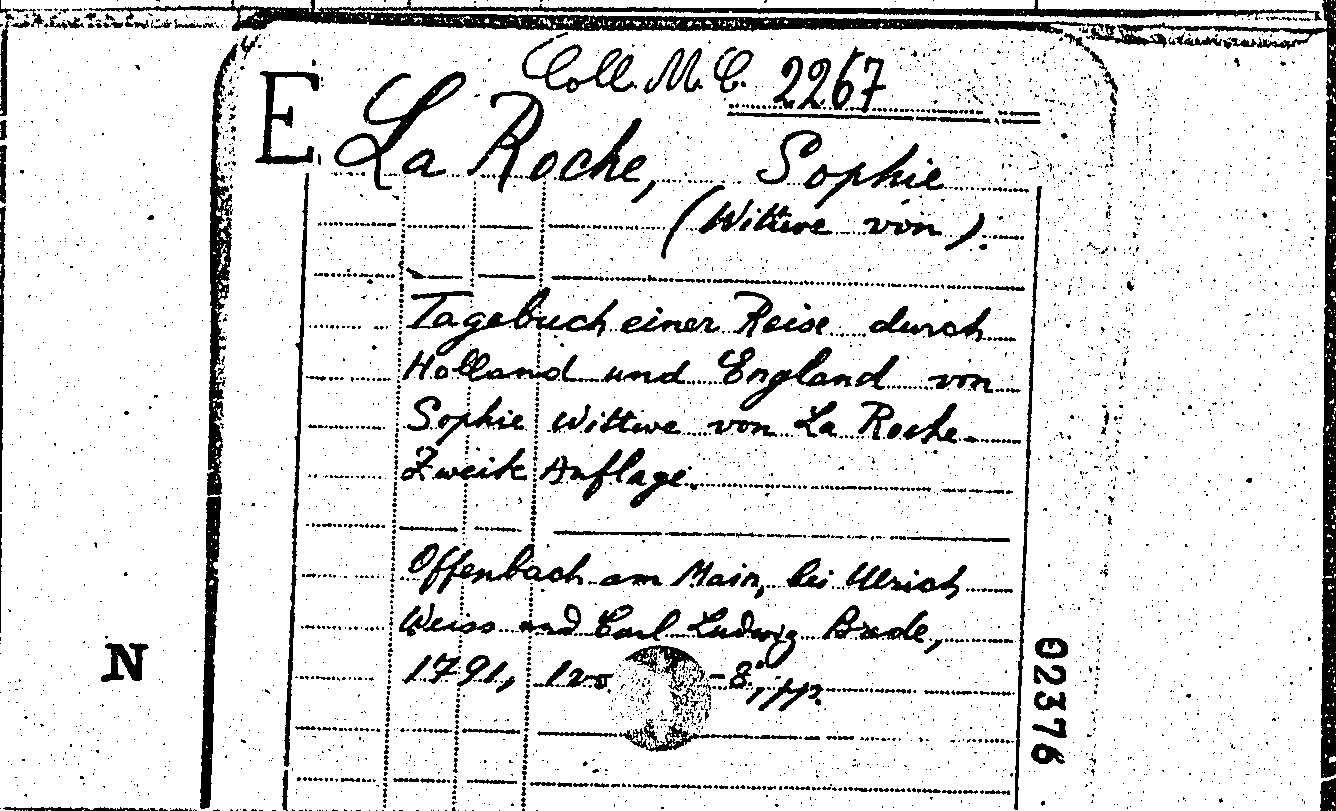 Coll. M. C. 2267
E
La Roche, Sophie
(Wittwe von).
Tagebuch einer Reise durch
Holland und England von
Sophie Wittwe von La Roche.
Zweite Auflage.
Offenbach am Main, bei Ulrich
Weiss und Carl Ludwig Brede,
1791, 1 vo -8°,
N
02376